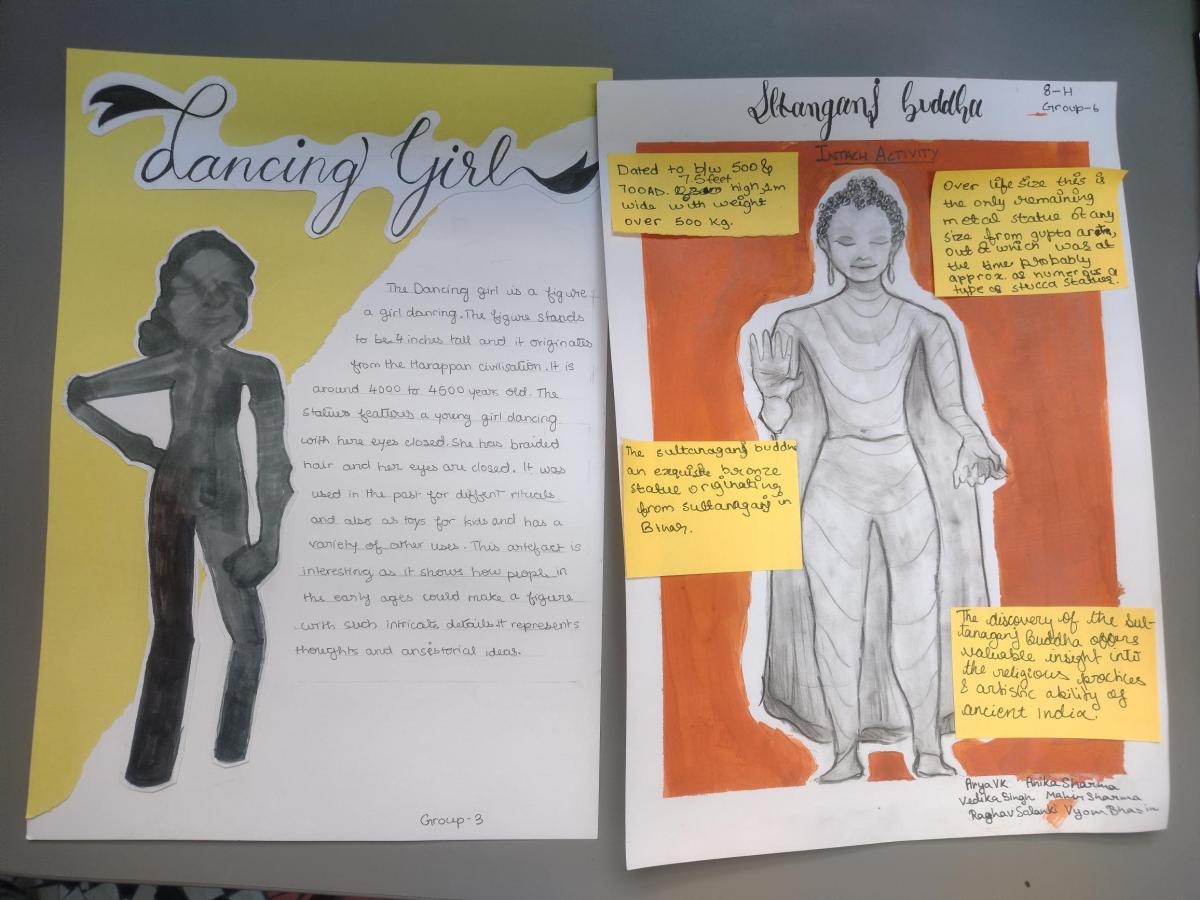 dancing Girl
The Dancing girl is a figure
a girl dancing. The figure stands
to be 4 inches tall and it originates
from the Harappan civilisation. It is
around 4000 to 4500 years old. The
statues features a young girl dancing
with here eyes closed. She has braided
hair and her eyes are closed. It was
used in the past for diffent rituals
and also as toys for kids and has a
variety of other uses. This artefact is
interesting as it shows how people in
the early ages could make a figure
with such intricate details. It represents
thoughts and ansestorial ideas.
Group-3
Sltanganj buddha
8-H
Group-6
INTACH ACTIVITY
Dated to b/w 500 &
7.5 feet
700AD. high, 1m
wide with weight
over 500 Kg.
Over life size this is
the only remaining
metal statue of any
size from gupta
out of which was at
the time probably
approx. as numerous a
type as stucca statues.
The sultanaganj buddha
an exquisite bronze
statue originating
from sultanaganj in
Bihar.
The discovery of the Sul-
tanaganj Buddha offers
valuable insight into
the religious practices
& artistic ability of
ancient India.
Arya VK Anika Sharma
Vedika Singh Mahir Sharma
Raghav Solanki Vyom Bhasin